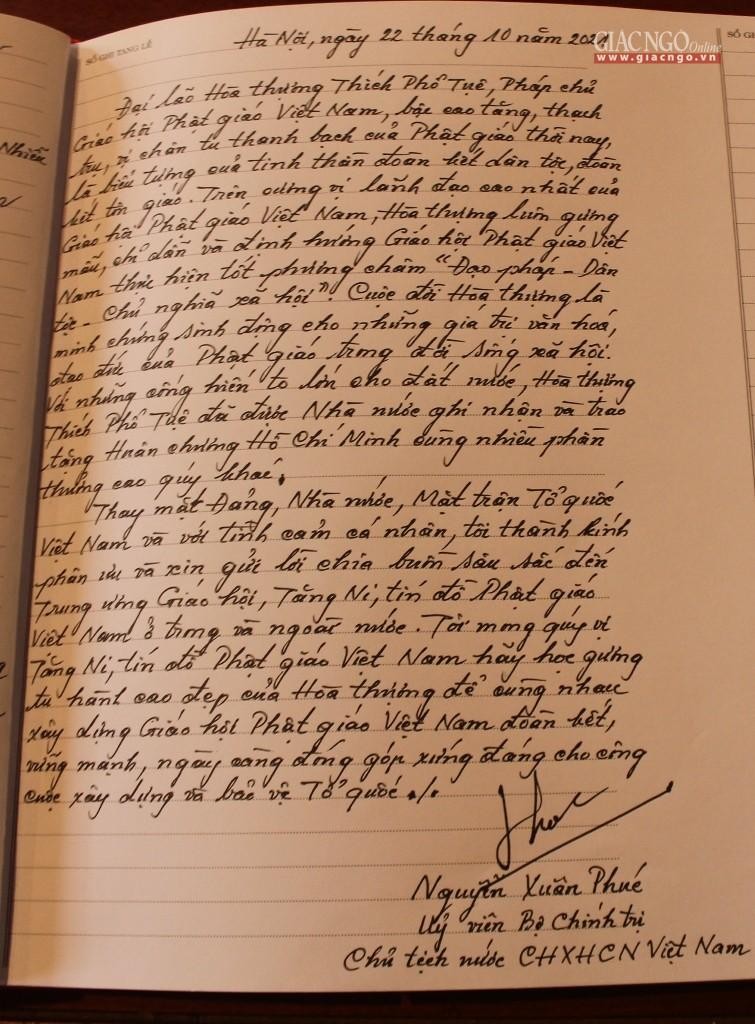 SỔ GHI TANG LỄ
Hà Nội, ngày 22 tháng 10 năm 2021
GIÁC NGỘ Online
www.giacngo.vn
SỔ GHI
Đại lão Hòa thượng Thích Phổ Tuệ, Pháp chủ
Giáo hội Phật giáo Việt Nam, bậc cao tăng, thạch
trụ, vị chân tu thanh bạch của Phật giáo thời nay,
là biểu tượng của tinh thần đoàn kết dân tộc, đoàn
kết tôn giáo. Trên cương vị lãnh đạo cao nhất của
Giáo hội Phật giáo Việt Nam, Hòa thượng luôn gương
mẫu, chỉ dẫn và định hướng Giáo hội Phật giáo Việt
Nam thực hiện tốt phương châm "Đạo pháp - Dân
tộc - Chủ nghĩa xã hội". Cuộc đời Hòa thượng là
minh chứng sinh động cho những giá trị văn hoá,
đạo đức của Phật giáo trong đời sống xã hội.
Với những cống hiến to lớn cho đất nước, Hòa thượng
Thích Phổ Tuệ đã được Nhà nước ghi nhận và trao
tặng Huân chương Hồ Chí Minh cùng nhiều phần
thưởng cao quý khác.
Thay mặt Đảng, Nhà nước, Mặt trận Tổ quốc
Việt Nam và với tình cảm cá nhân, tôi thành kính
phân ưu và xin gửi lời chia buồn sâu sắc đến
Trung ương Giáo hội, Tăng Ni, tín đồ Phật giáo
Việt Nam ở trong và ngoài nước. Tôi mong quý vị
Tăng Ni, tín đồ Phật giáo Việt Nam hãy học gương
tu hành cao đẹp của Hòa thượng để cùng nhau
xây dựng Giáo hội Phật giáo Việt Nam đoàn kết,
vững mạnh, ngày càng đóng góp xứng đáng cho công
cuộc xây dựng và bảo vệ Tổ quốc ./.
Nguyễn Xuân Phúc
Uỷ viên Bộ Chính trị
Chủ tịch nước CHXHCN Việt Nam
Nhiễu